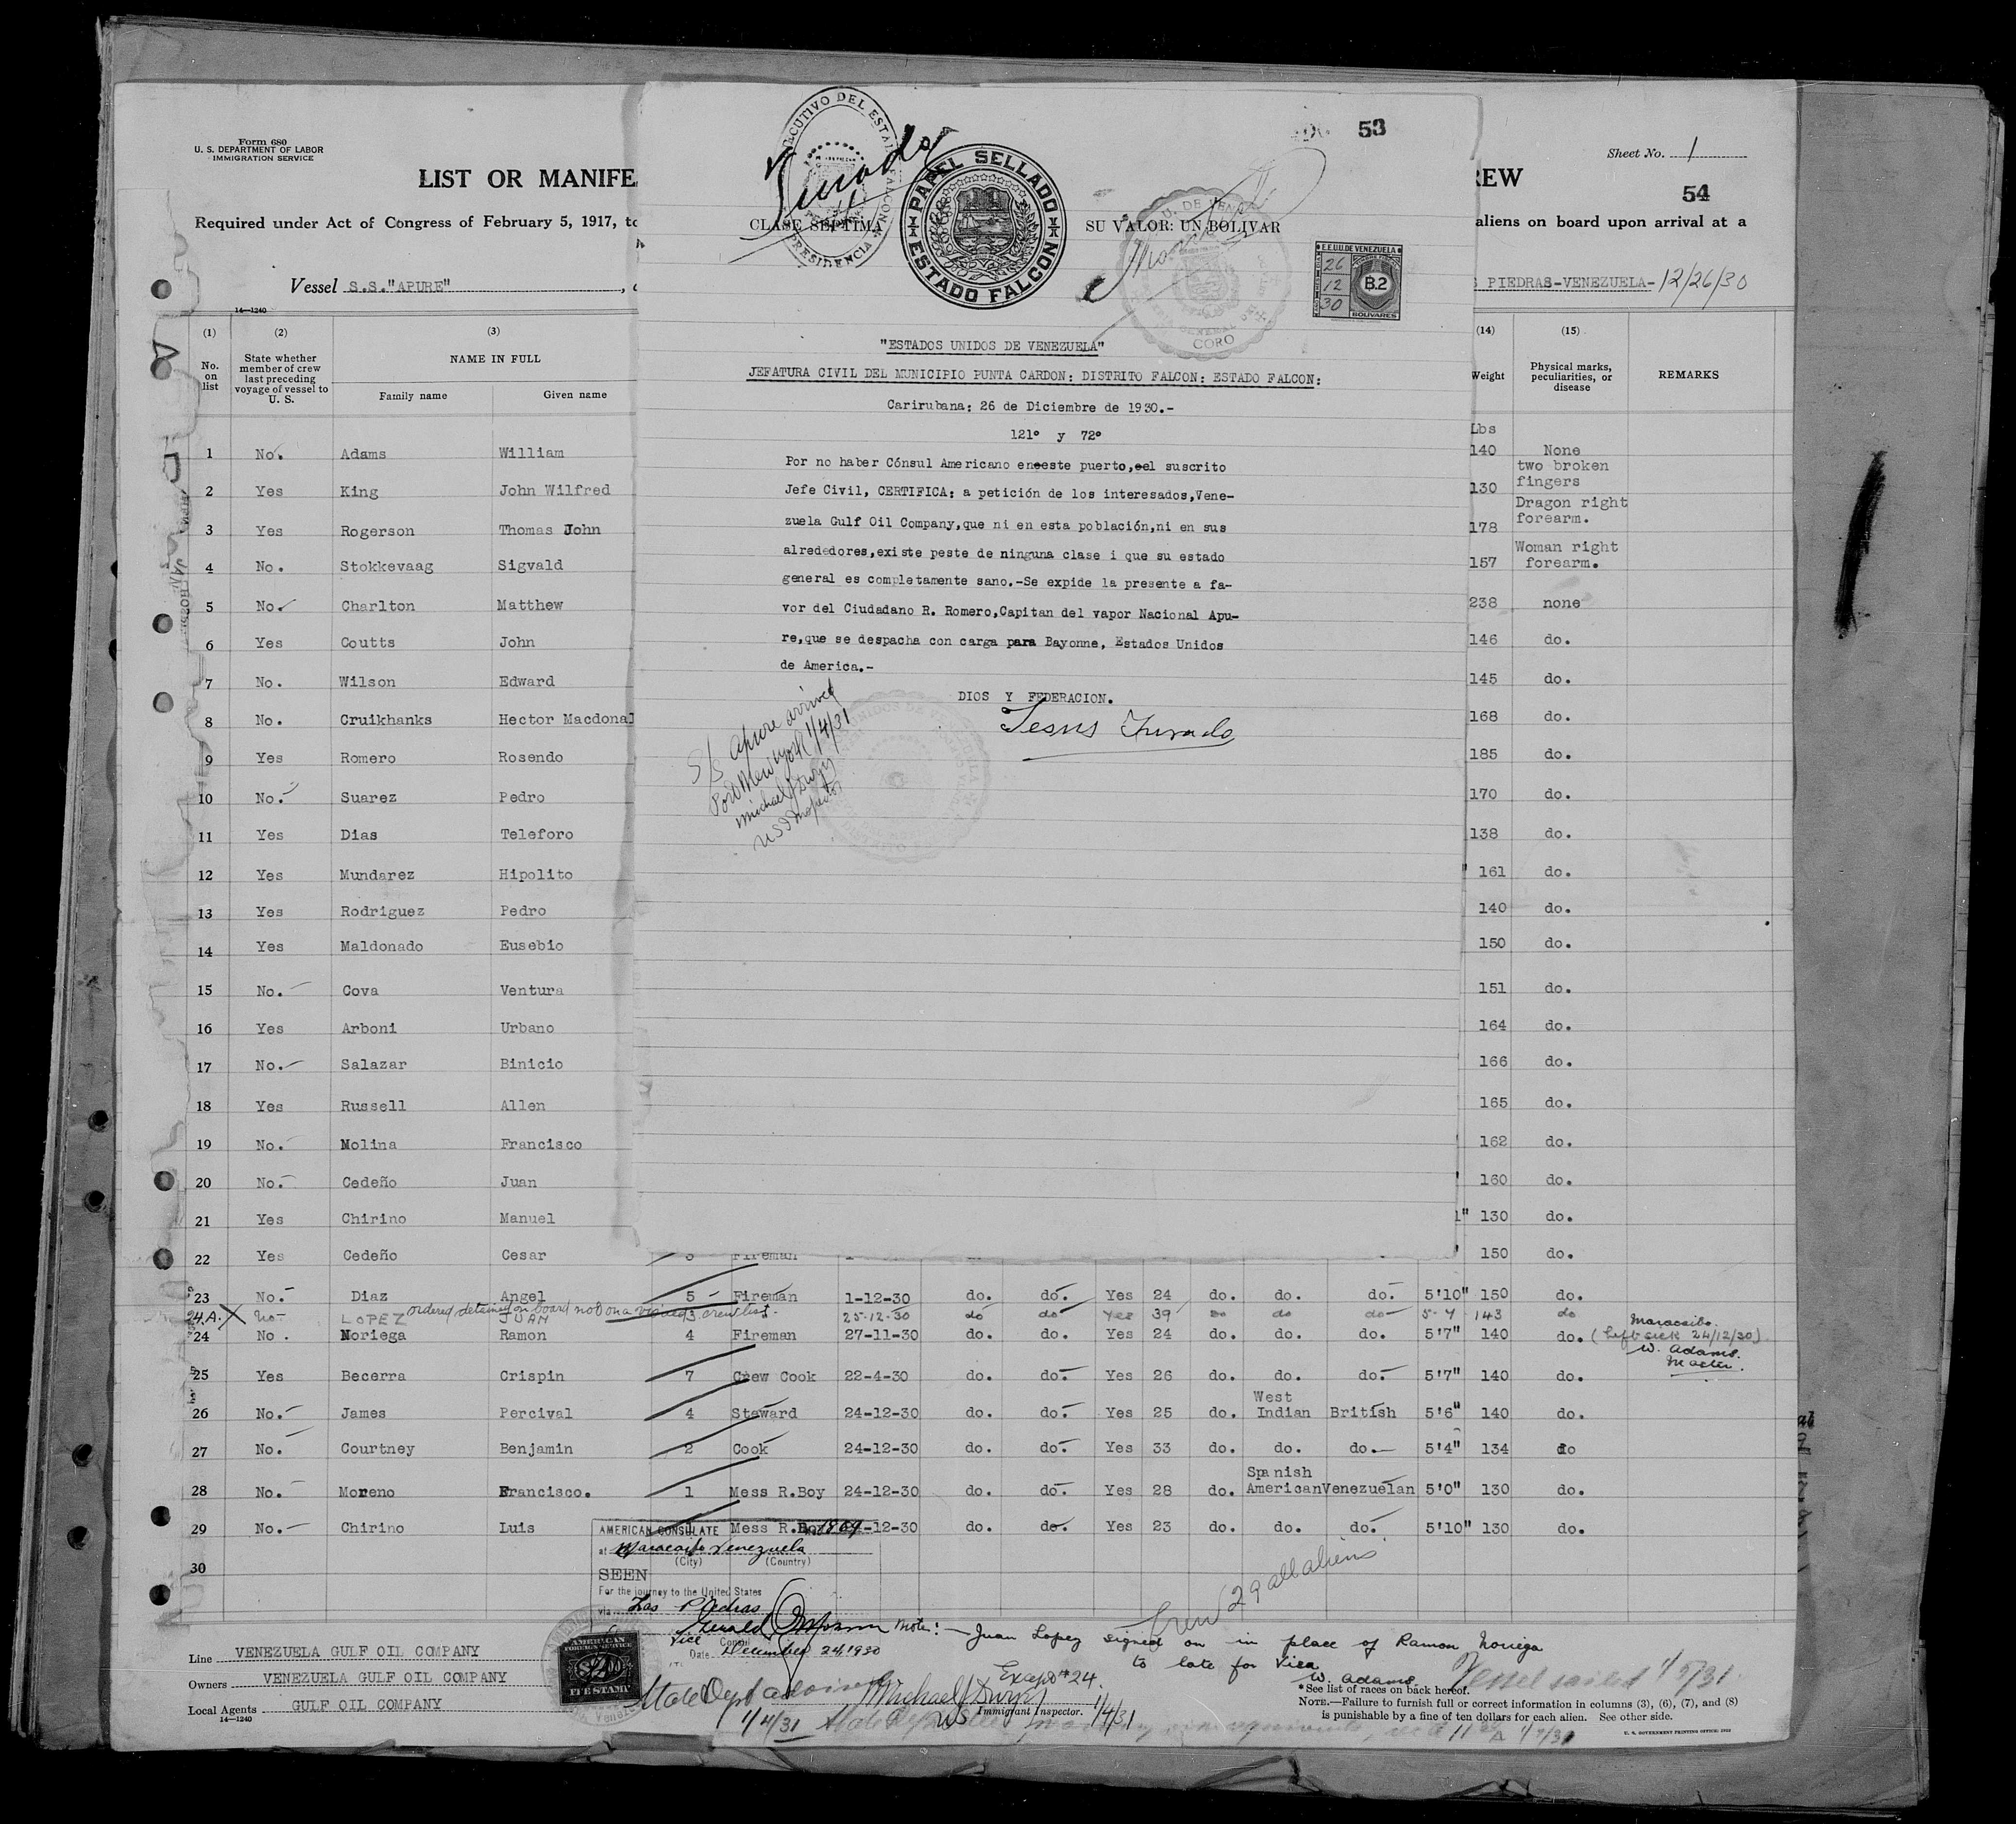 Form 680
U. S. DEPARTMENT OF LABOR
IMMIGRATION SERVICE
LIST OR MANIFE
Required under Act of Congress of February 5, 1917, to
Vessel S.S."APURE"
14—1240
EJECUTIVO DEL ESTADO FALCON
PRESIDENCIA
Jurado
CLASE SEPTIMA
PAPEL SELLADO
ESTADO FALCON
SU VALOR: UN BOLIVAR
CORO
53
E.E.U.U. DE VENEZUELA
26
12
30
B.2
BOLIVARES
"ESTADOS UNIDOS DE VENEZUELA"
JEFATURA CIVIL DEL MUNICIPIO PUNTA CARDON: DISTRITO FALCON: ESTADO FALCON:
Carirubana: 26 de Diciembre de 1930.-
121° y 72°
Por no haber Cónsul Americano eneeste puerto,eel suscrito
Jefe Civil, CERTIFICA: a petición de los interesados,Vene-
zuela Gulf Oil Company,que ni en esta población,ni en sus
alrededores,existe peste de ninguna clase i que su estado
general es completamente sano.-Se expide la presente a fa-
vor del Ciudadano R. Romero,Capitan del vapor Nacional Apu-
re,que se despacha con carga para Bayonne, Estados Unidos
de America.-
DIOS Y FEDERACION.
Jesus Jurado
S/S Apure arrived
Port New York 1/4/31
Michael J Dwyer
US I Inspector
Sheet No. 1
REW
54
aliens on board upon arrival at a
S PIEDRAS-VENEZUELA- 12/26/30
(1) (2) (3) (14) (15)
No. on list
State whether member of crew last preceding voyage of vessel to U. S.
NAME IN FULL
Family name Given name
Weight
Physical marks, peculiarities, or disease
REMARKS
Lbs
1 No. Adams William 140 None
2 Yes King John Wilfred 130 two broken fingers
3 Yes Rogerson Thomas John 178 Dragon right forearm.
4 No. Stokkevaag Sigvald 157 Woman right forearm.
5 No. Charlton Matthew 238 none
6 Yes Coutts John 146 do.
7 No. Wilson Edward 145 do.
8 No. Cruikhanks Hector Macdonal 168 do.
9 Yes Romero Rosendo 185 do.
10 No. Suarez Pedro 170 do.
11 Yes Dias Teleforo 138 do.
12 Yes Mundarez Hipolito " 161 do.
13 Yes Rodriguez Pedro 140 do.
14 Yes Maldonado Eusebio 150 do.
15 No. Cova Ventura 151 do.
16 Yes Arboni Urbano 164 do.
17 No. Salazar Binicio 166 do.
18 Yes Russell Allen 165 do.
19 No. Molina Francisco 162 do.
20 No. Cedeño Juan 160 do.
21 Yes Chirino Manuel 1" 130 do.
22 Yes Cedeño Cesar Fireman 150 do.
23 No. Diaz Angel 5 Fireman 1-12-30 do. do. Yes 24 do. do. do. 5'10" 150 do.
ordered detained on board not on a visaed crew list.
24.A. X No LOPEZ JUAN 3 25-12-30 do do Yes 39 do do do 5-4 143 do
24 No. Noriega Ramon 4 Fireman 27-11-30 do. do. Yes 24 do. do. do. 5'7" 140 do. Maracaibo. (left sick 24/12/30) W. Adams. Master.
25 Yes Becerra Crispin 7 Crew Cook 22-4-30 do. do. Yes 26 do. do. do. 5'7" 140 do.
26 No. James Percival 4 Steward 24-12-30 do. do. Yes 25 do. West Indian British 5'6" 140 do.
27 No. Courtney Benjamin 2 Cook 24-12-30 do. do. Yes 33 do. do. do. 5'4" 134 do
28 No. Moreno Francisco. 1 Mess R.Boy 24-12-30 do. do. Yes 28 do. Spanish American Venezuelan 5'0" 130 do.
29 No. Chirino Luis Mess R. -12-30 do. do. Yes 23 do. do. do. 5'10" 130 do.
30
AMERICAN CONSULATE
at Maracaibo Venezuela
(City) (Country)
SEEN
For the journey to the United States
via Las Piedras
Vice Consul
Date December 24, 1930
Crew 29 all aliens
Note:— Juan Lopez signed on in place of Ramon Noriega
to late for visa
W. Adams.
Except #24.
Vessel sailed 1/5/31
Line VENEZUELA GULF OIL COMPANY
Owners VENEZUELA GULF OIL COMPANY
Local Agents GULF OIL COMPANY
14—1240
AMERICAN
FOREIGN SERVICE
FEE STAMP
State Dept advised
1/4/31
Michael J Dwyer
US Immigrant Inspector. 1/4/31
*See list of races on back hereof.
NOTE.—Failure to furnish full or correct information in columns (3), (6), (7), and (8)
is punishable by a fine of ten dollars for each alien. See other side.
U. S. GOVERNMENT PRINTING OFFICE